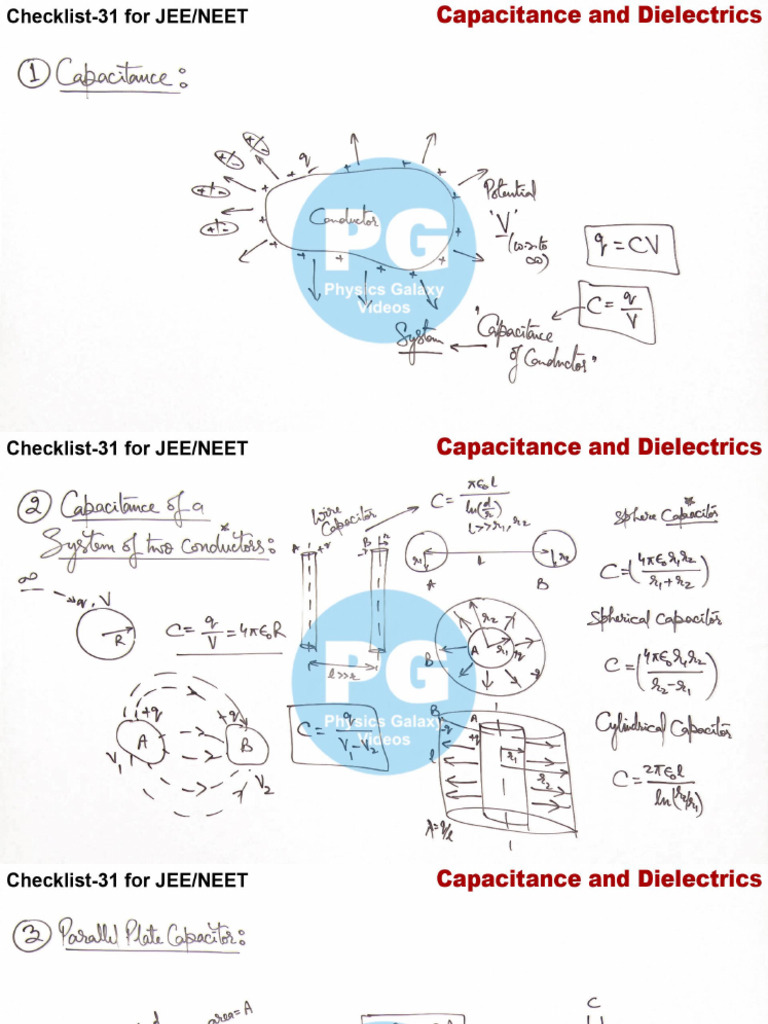 Checklist-31 for JEE/NEET
Capacitance and Dielectrics
① Capacitance:
q
Conductor
Potential
'V'
(w.r. to
∞)
q = CV
C = q/V
'Capacitance
of Conductor'
System
PG
Physics Galaxy
Videos
Checklist-31 for JEE/NEET
Capacitance and Dielectrics
② Capacitance of a
System of two Conductors*:
∞
q, V
R
C = q/V = 4π∈₀R
Wire
Capacitor
C = π∈₀l / ln(d/r)
l >> r₁, r₂
A
+q
B
r
l >> r
r₁
l
r₂
A
B
Sphere Capacitor*
C = (4π∈₀r₁r₂ / r₁+r₂)
Spherical Capacitor
C = (4π∈₀r₁r₂ / r₂-r₁)
r₂
A
r₁
+q
B
A
+q
V₁
B
V₂
C = q / V₁-V₂
Cylindrical Capacitor
C = 2π∈₀l / ln(r₂/r₁)
B
A
-q
+q
l
r₁
r₂
λ = q/l
PG
Physics Galaxy
Videos
Checklist-31 for JEE/NEET
Capacitance and Dielectrics
③ Parallel Plate Capacitor:
d
area = A
C